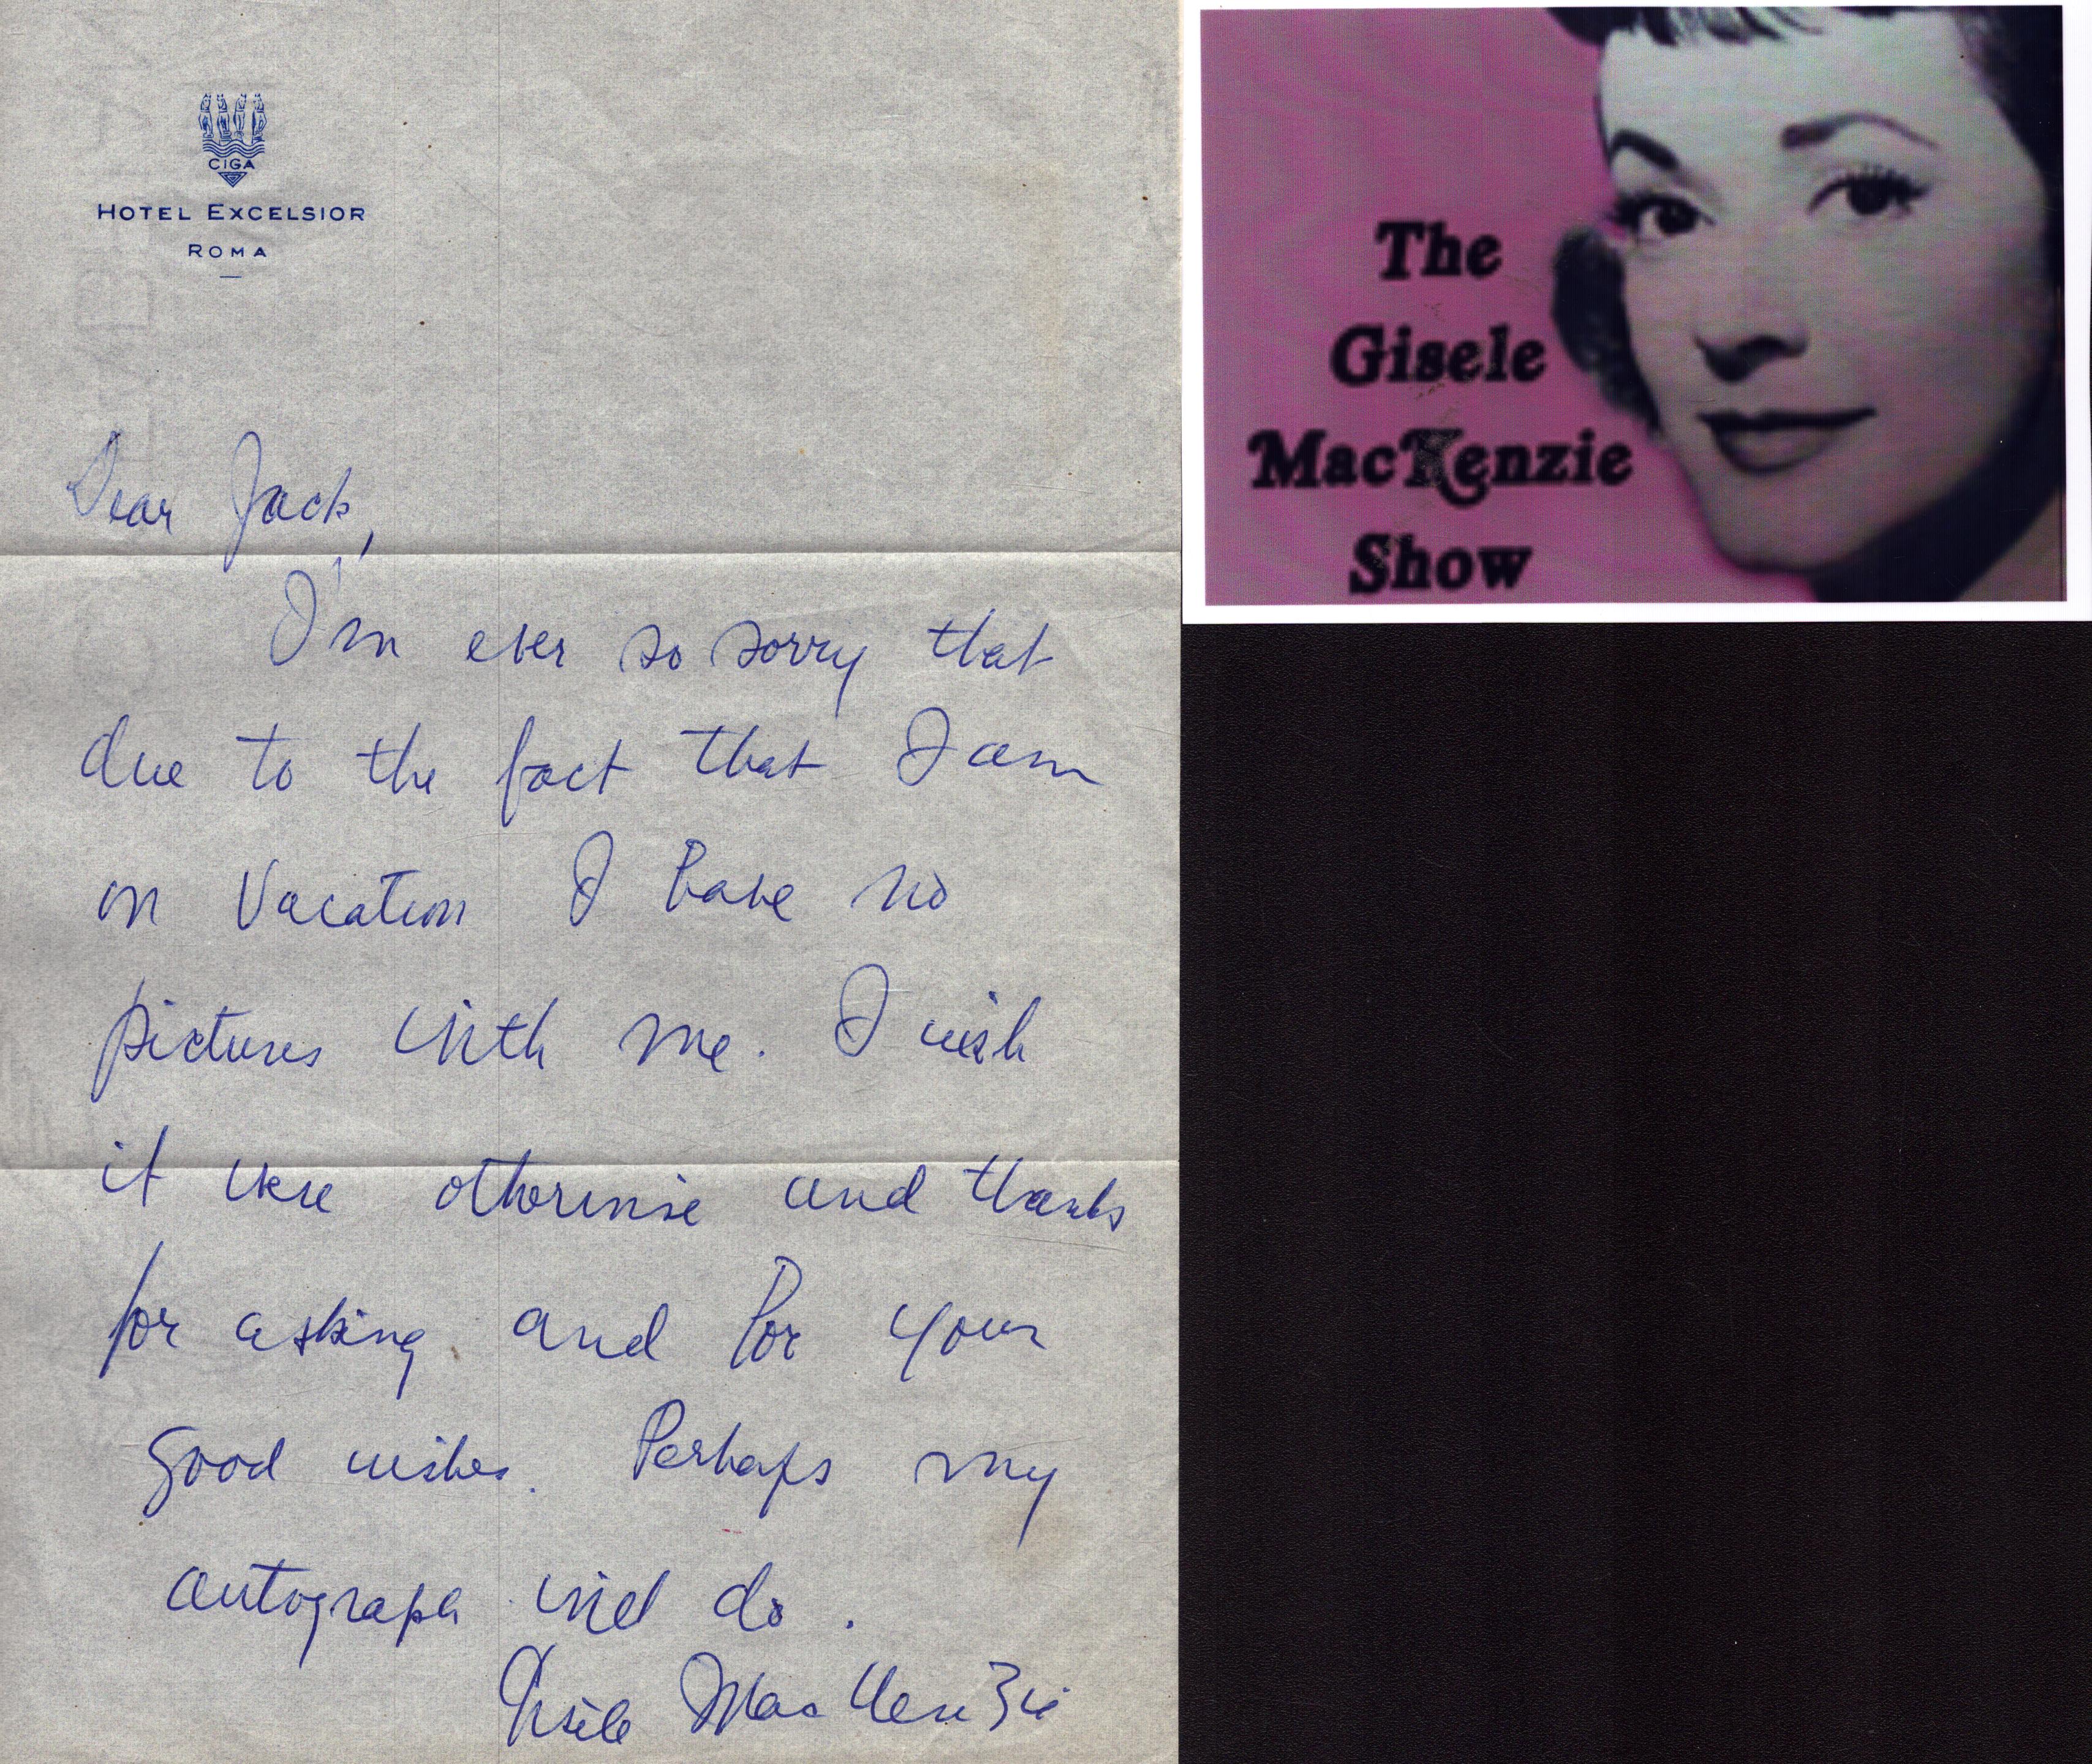 CIGA
HOTEL EXCELSIOR
ROMA
Dear Jack,
I'm ever so sorry that
due to the fact that I am
on vacation I have no
pictures with me. I wish
it were otherwise and thanks
for asking and for your
good wishes. Perhaps my
autograph will do.
Gisele MacKenzie
The
Gisele
MacKenzie
Show